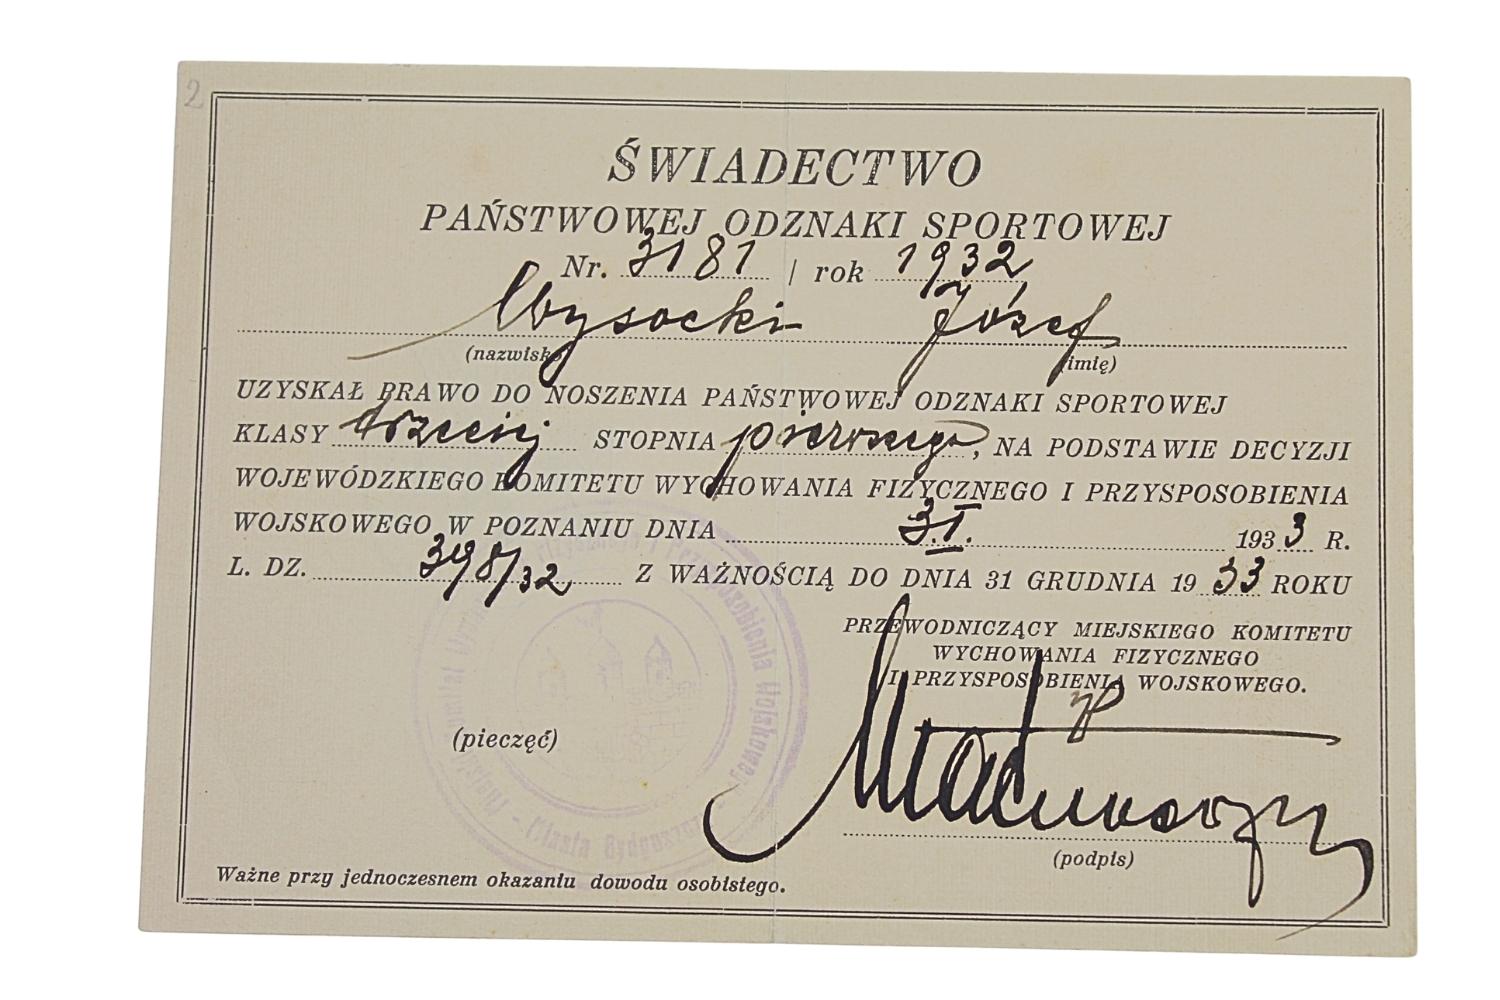 2
ŚWIADECTWO
PAŃSTWOWEJ ODZNAKI SPORTOWEJ
Nr. 3181 / rok 1932
Wysocki Józef
(nazwisko) (imię)
UZYSKAŁ PRAWO DO NOSZENIA PAŃSTWOWEJ ODZNAKI SPORTOWEJ
KLASY trzeciej STOPNIA pierwszego, NA PODSTAWIE DECYZJI
WOJEWÓDZKIEGO KOMITETU WYCHOWANIA FIZYCZNEGO I PRZYSPOSOBIENIA
WOJSKOWEGO W POZNANIU DNIA 3.I. 1933 R.
L. DZ. 398/32 Z WAŻNOŚCIĄ DO DNIA 31 GRUDNIA 1933 ROKU
PRZEWODNICZĄCY MIEJSKIEGO KOMITETU
WYCHOWANIA FIZYCZNEGO
I PRZYSPOSOBIENIA WOJSKOWEGO.
(pieczęć)
Przysposobienia Wojskowego
Miasta Bydgoszcz
(podpis)
Ważne przy jednoczesnem okazaniu dowodu osobistego.